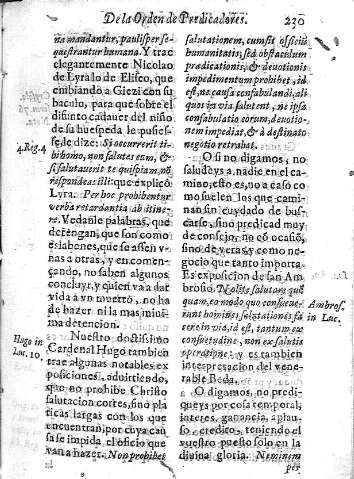 De la Orden de Predicadores.
230
na mandantur, paulisper se-
questrantur humana. Y trae
elegantemente Nicolao
de Lyra lo de Eliseo, que
embiando a Giezi con su
baculo, para que sobre el
difunto cadauer del niño
de su huespeda le pusies-
se, le dize: Si occurrerit ti-
bi homo, non salutes eum, &
si salutauerit te quispiam, no
respondeas illi: que explicò
Lyra. Per hoc prohibentur
verba retardantia ab itine-
re. Vedanle palabras, que
detengan, que son como
eslabones, que se asen v-
nas a otras, y en comen-
çando, no saben algunos
concluyr, y quien va a dar
vida a vn muerto, no ha
de hazer ni la mas mini-
ma detencion.
Nuestro doctissimo
Cardenal Hugo tambien
trae algunas notables ex
posiciones, aduirtiendo,
que no prohibe Christo
salutacion cortes, sino pla
ticas largas con los que
encuentran, por cuya cau
sa se impida el oficio que
van a hazer. Non prohibet
4. Reg. 4
Hugo in
Luc. 10.
salutationem, cum sit officiũ
humanitatis, sed obstaculum
prædicationis, & deuotionis
impedimentum prohibet, id
est, ne causa confabulandi, ali
quos in via salutent, ne ipsa
confabulatio eorum, deuotio-
nem impediat, & à destinato
negotio retrahat.
O si no digamos, no
saludeys a nadie en el ca-
mino, esto es, no a caso co
mo suelen los que cami-
nan sin cuydado de bus-
carse, sino predicad muy
de consejo, no co ocasiõ,
sino de veras, y como ne-
gocio que tanto importa.
Es exposicion de san Am
brosio. Nolite salutare que
quam, eo modo quo consueue-
runt homines salutationes fa
cere in via, id est, tantum ex
consuetudine, non ex salutis
operatione: y es tambien
interpretacion del vene-
rable Beda.
O digamos, no predi-
queys por cosa temporal,
interes, ganancia, aplau-
so, credito, teniendo el
vuestro puesto solo en la
diuina gloria. Neminem
per
Ambros.
in Luc.